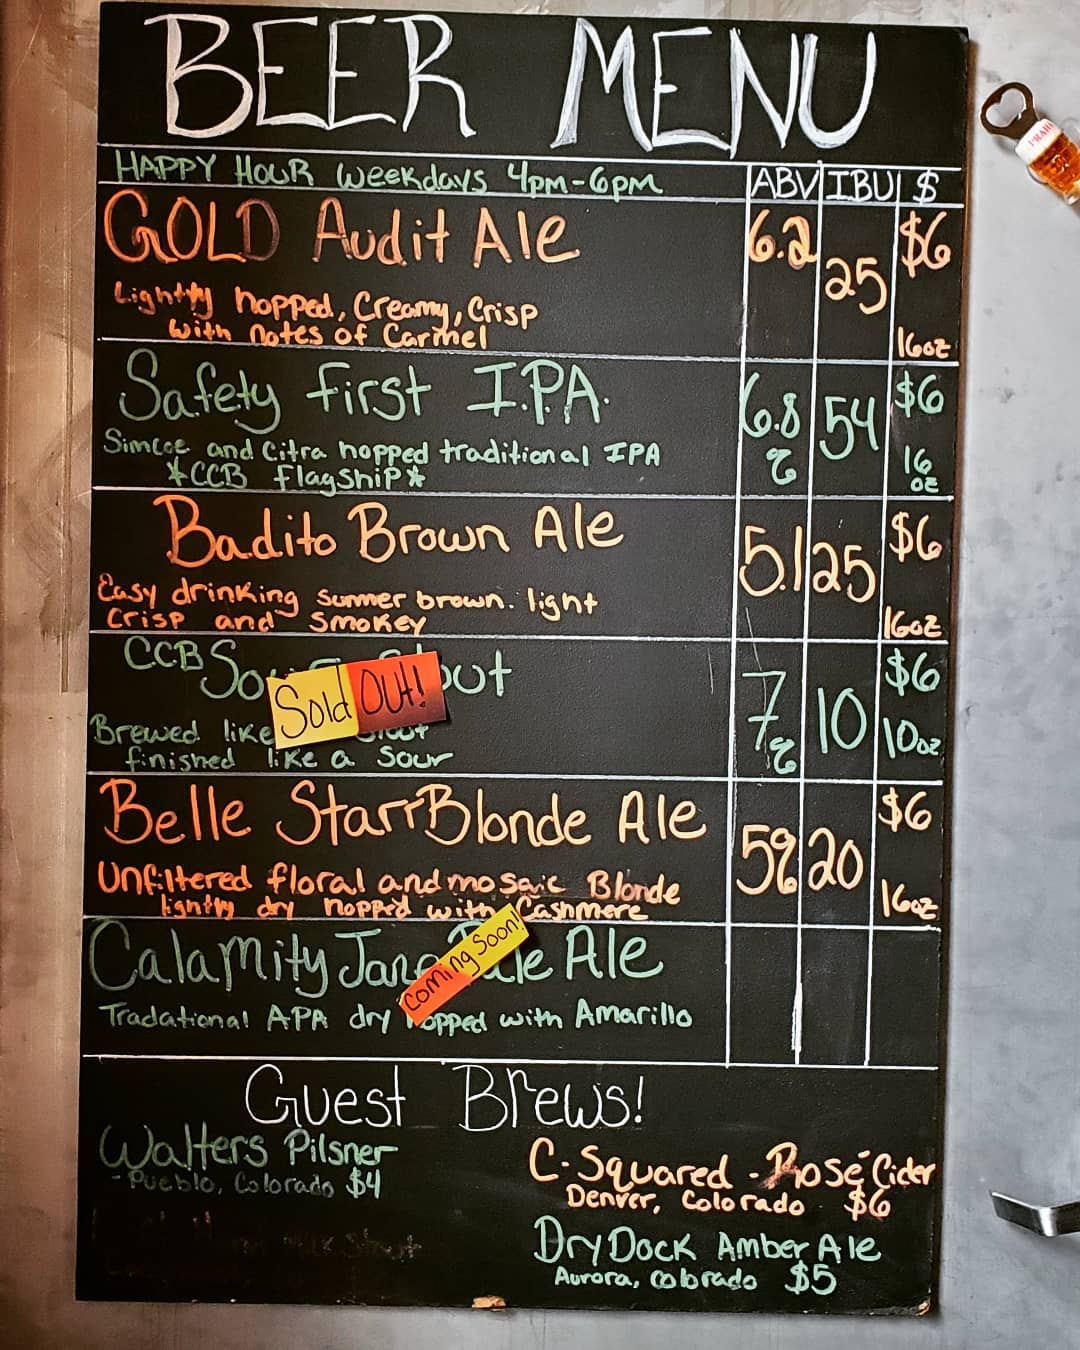 BEER MENU
HAPPY HOUR weekdays 4pm-6pm ABV IBU $
GOLD Audit Ale 6.2 25 $6
Lightly hopped, Creamy, Crisp
with notes of Carmel 16oz
Safety first I.P.A. 6.8 54 $6
Simcoe and Citra hopped traditional IPA 16
*CCB flagship* oz
Badito Brown Ale 5.1 25 $6
Easy drinking summer brown. light
Crisp and Smokey 16oz
CCB 7 10 $6
Sold OUT!
Brewed like 10oz
finished like a Sour
Belle Starr Blonde Ale 5% 20 $6
Unfiltered floral and mosaic Blonde
lightly dry hopped with Cashmere 16oz
Calamity Jane Pale Ale
Coming Soon!
Tradational APA dry hopped with Amarillo
Guest Brews!
Walters Pilsner
- Pueblo, Colorado $4
C-Squared - Rosé Cider
Denver, Colorado $6
Dry Dock Amber Ale
Aurora, Colorado $5